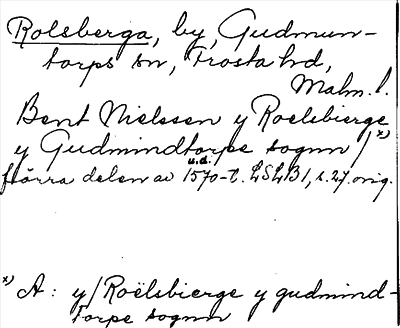 Rolsberga, by, Gudmun-
torps sn, Frosta hd,
Malm. l.
Bent Nielssen y Roelsbierge
y Gudmindtorpe sognn / x)
u.d.
större delen av 1570-t. LSLB 1, s. 27. orig.
x) A: y / Roëlsbierge y gudmind-
torpe sognn